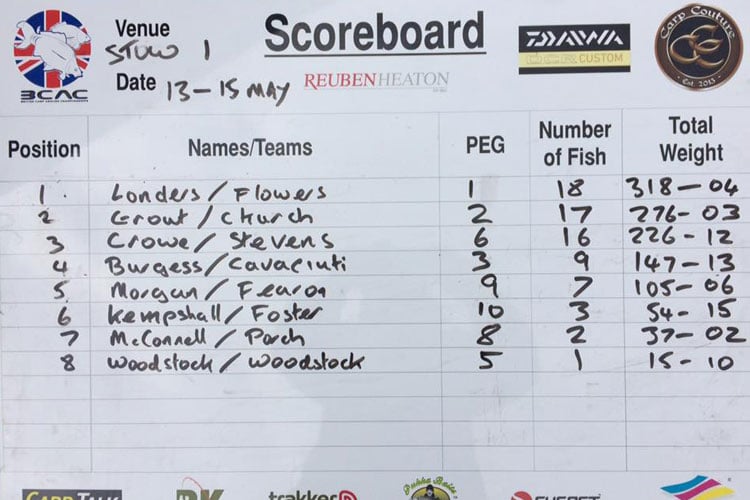 BCAC
Venue STOW 1
Scoreboard
DAIWA
CUSTOM
Carp Couture
Est 2013
Date 13-15 MAY
REUBEN HEATON
Position Names/Teams PEG Number of Fish Total Weight
1. Londers / Flowers 1 18 318-04
2 Grout / Church 2 17 276-03
3 Crowe / Stevens 6 16 226-12
4 Burgess / Cavaciuti 3 9 147-13
5 Morgan / Fearon 9 7 105-06
6 Kempshall / Foster 10 3 54-15
7 McConnell / Porch 8 2 37-02
8 Woodstock / Woodstock 5 1 15-10
CARP TALK
trakker
Pukka Baits